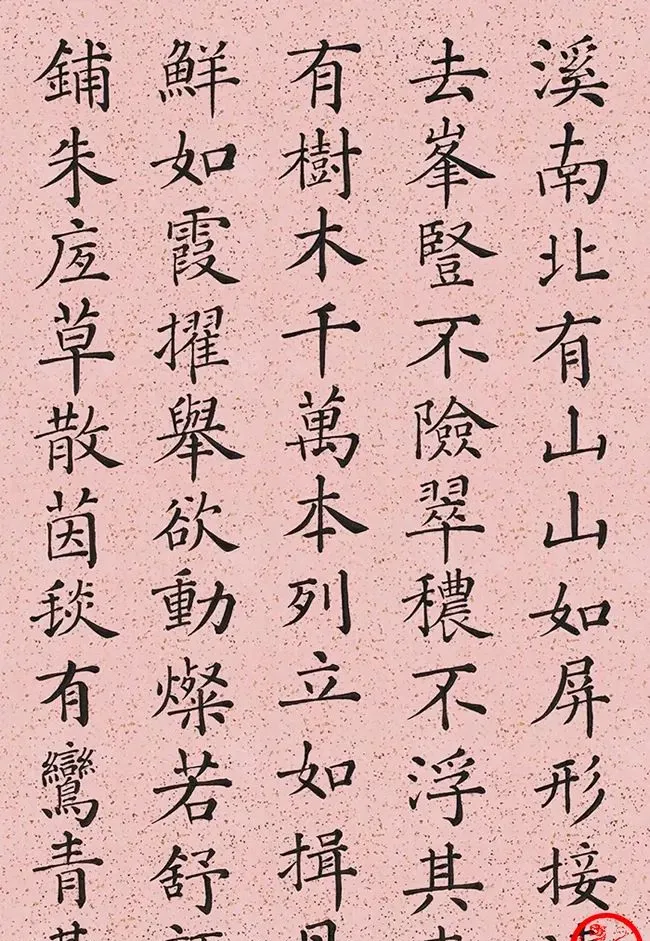 溪南北有山山如屏形接
去峯豎不險翠穠不浮其
有樹木千萬本列立如揖
鮮如霞擢舉欲動燦若舒
鋪朱底草散茵毯有鸞青